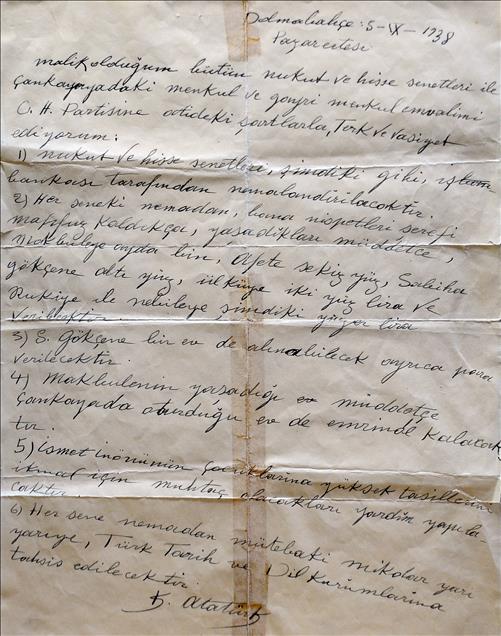 Dolmabahçe: 5-IX-1938
Pazartesi
malik olduğum bütün nukut ve hisse senetleri ile
Çankayayadaki menkul ve gayri menkul emvalimi
C. H. Partisine atideki şartlarla, Terk ve Vasiyet
ediyorum:
1) nukut ve hisse senetleri, şimdiki gibi, iş
bankası tarafından nemalandırılacaktır.
2) Her seneki nemadan, bana nispetleri şerefi
mahfuz kaldıkça, yaşadıkları müddetçe,
Makbuleye ayda bin, Afete sekiz yüz, Sabiha
gökçene altı yüz, ülküye iki yüz lira ve
Rukiye ile nebileye şimdiki yüzer lira
verilecektir.
3) S. Gökçene bir ev de alınabilecek ayrıca para
verilecektir.
4) Makbulenin yaşadığı müddetçe
Çankayada oturduğu ev de emrinde kalacak
tır.
5) ismet inönünün çocuklarına yüksek tasillerini
ikmal için muhtaç olacakları yardım yapıla
caktır.
6) Her sene nemadan mütebaki mikdar yarı
yarıye, Türk Tarih ve Dil Kurumlarına
tahsis edilecektir.
K. Atatürk